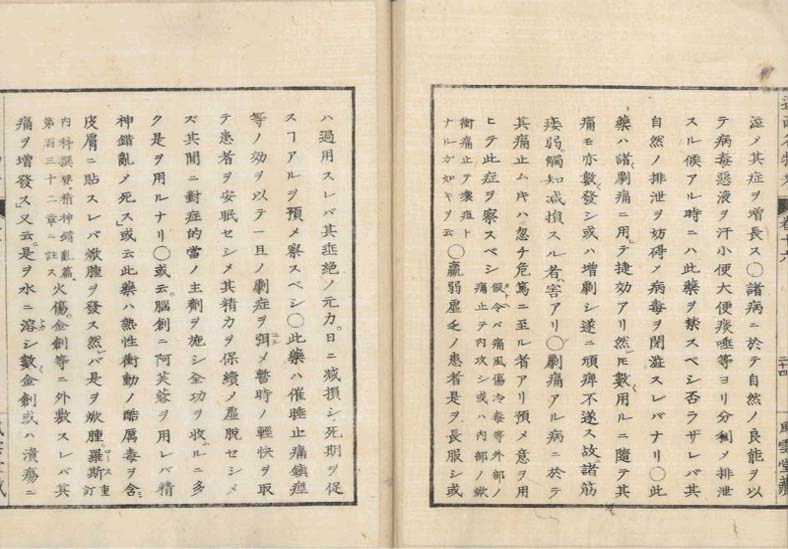 澁メ其症ヲ増長ス〇諸病ニ於テ自然ノ良能ヲ以
テ病毒惡液ヲ汗小便大便痰唾等ヨリ分利メ排泄
スル候アル時ニハ此藥ヲ禁スベシ否ラザレバ其
自然ノ排泄ヲ妨碍メ病毒ヲ閉澁スレバナリ〇此
藥ハ諸劇痛ニ用テ捷効アリ然𪜈數用ルニ隨テ其
痛モ亦數發シ或ハ増劇シ遂ニ頑痺不遂ス故諸筋
痿弱觸知减損スル者害アリ〇劇痛アル病ニ於テ
其痛止ム片ハ忽チ危篤ニ至ル者アリ預メ意ヲ用
ヒテ此症ヲ察スベシ
假令バ痛風傷冷毒等外部ノ
痛止テ内攻シ或ハ内部ノ焮
衝痛止テ壞疽ト
ナルガ如キヲ云
〇羸弱虚乏ノ患者是ヲ長服シ或
卷十六
二十四
風雲堂藏
ハ過用スレバ其垂絶ノ元力日ニ减損シ死期ヲ促
スヿアルヲ預メ察スベシ〇此藥ハ催睡止痛鎮痙
等ノ効ヲ以テ一旦ノ劇症ヲ弭メ暫時ノ輕快ヲ取
テ患者ヲ安眠セシメ其精力ヲ保續メ虚脱セシメ
ズ其間ニ對症的當ノ主劑ヲ施シ全功ヲ收ルニ多
ク是ヲ用ルナリ〇或云腦創ニ阿芙蓉ヲ用レバ精
神錯亂メ死ス或云此藥ハ熱性衝動ノ酷厲毒ヲ含
皮膚ニ貼スレバ焮腫ヲ發ス然バ是ヲ焮腫
羅斯重訂
内科撰要精神錯亂篇
第百三十二章ニ註ス
火傷金創等ニ外敷スレバ其
痛ヲ増發ス又云是ヲ水ニ溶シ數金創或ハ潰瘍ニ